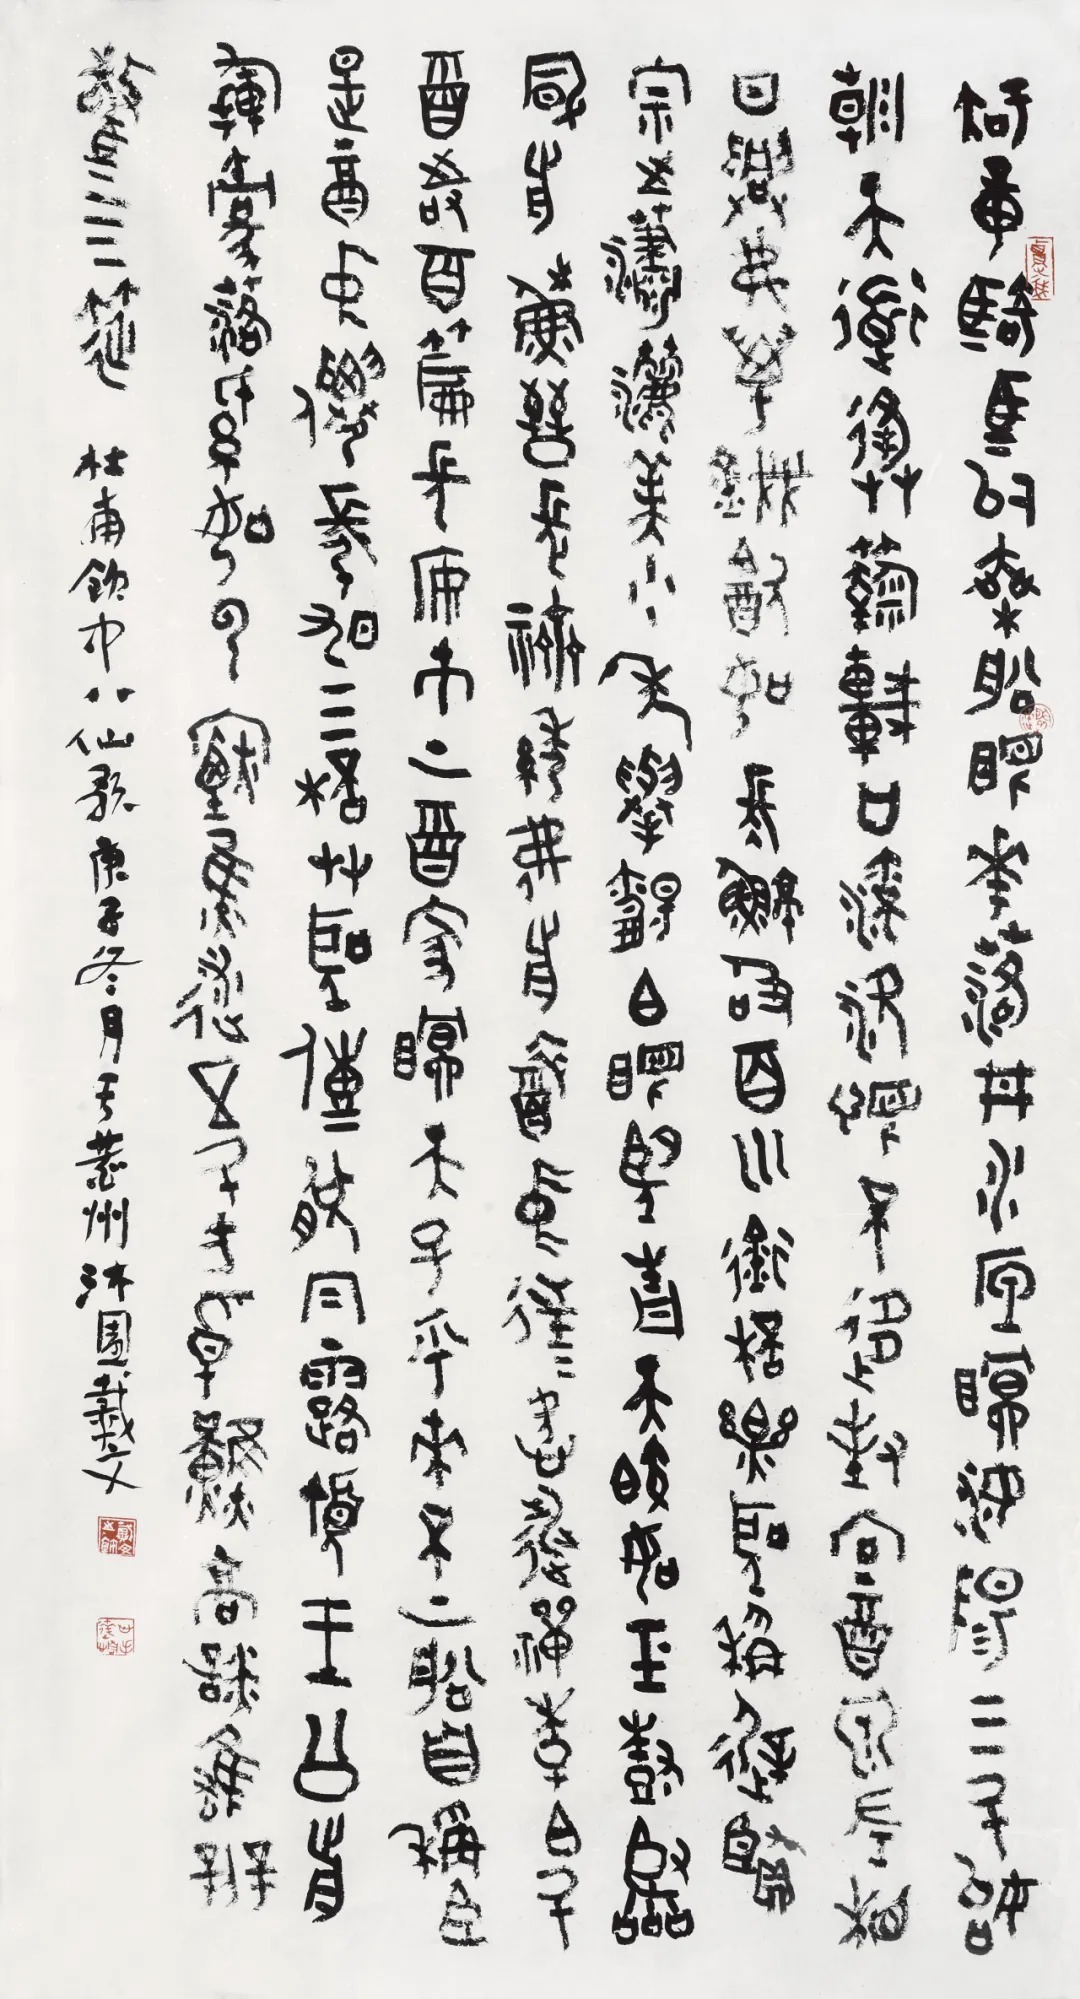 知章騎馬似乘船眼花落井水底眠汝陽三斗始
朝天道逢麴車口流涎恨不移封向酒泉左相
日興費萬錢飲如長鯨吸百川銜杯樂聖稱避賢
宗之瀟灑美少年舉觴白眼望青天皎如玉樹臨
風前蘇晉長齋繡佛前醉中往往愛逃禪李白斗
酒詩百篇長安市上酒家眠天子呼來不上船自稱臣
是酒中仙張旭三杯草聖傳脫帽露頂王公前
揮毫落紙如雲煙焦遂五斗方卓然高談雄辯
驚四筵 杜甫飲中八仙歌庚子冬月于州沐園戴文